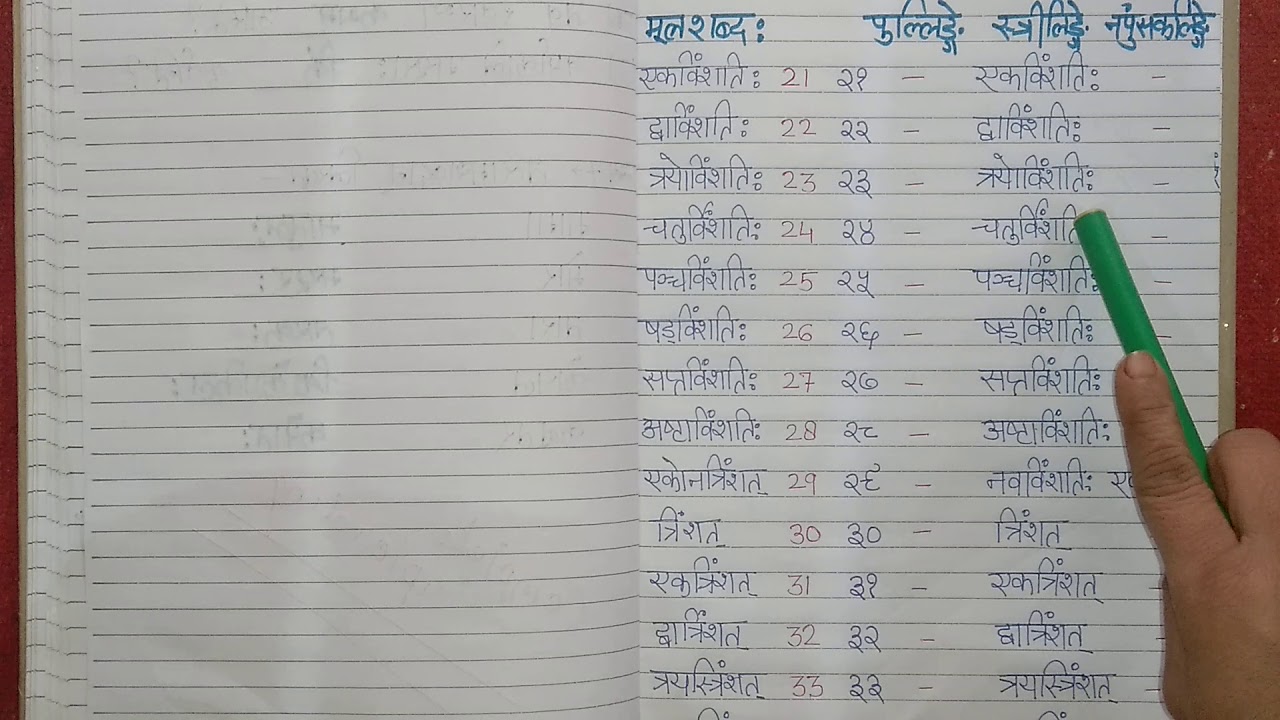 मूलशब्द: पुल्लिङ्गे स्त्रीलिङ्गे नपुंसकलिङ्गे
एकविंशतिः 21 २१ – एकविंशतिः –
द्वाविंशतिः 22 २२ – द्वाविंशतिः –
त्रयोविंशतिः 23 २३ – त्रयोविंशतिः –
चतुर्विंशतिः 24 २४ – चतुर्विंशति –
पञ्चविंशतिः 25 २५ – पञ्चविंशतिः –
षड्विंशतिः 26 २६ – षड्विंशतिः –
सप्तविंशतिः 27 २७ – सप्तविंशतिः
अष्टाविंशतिः 28 २८ – अष्टाविंशतिः
एकोनत्रिंशत् 29 २९ – नवविंशतिः
त्रिंशत् 30 ३० – त्रिंशत्
एकत्रिंशत् 31 ३१ – एकत्रिंशत्
द्वात्रिंशत् 32 ३२ – द्वात्रिंशत् –
त्रयस्त्रिंशत् 33 ३३ – त्रयस्त्रिंशत् –